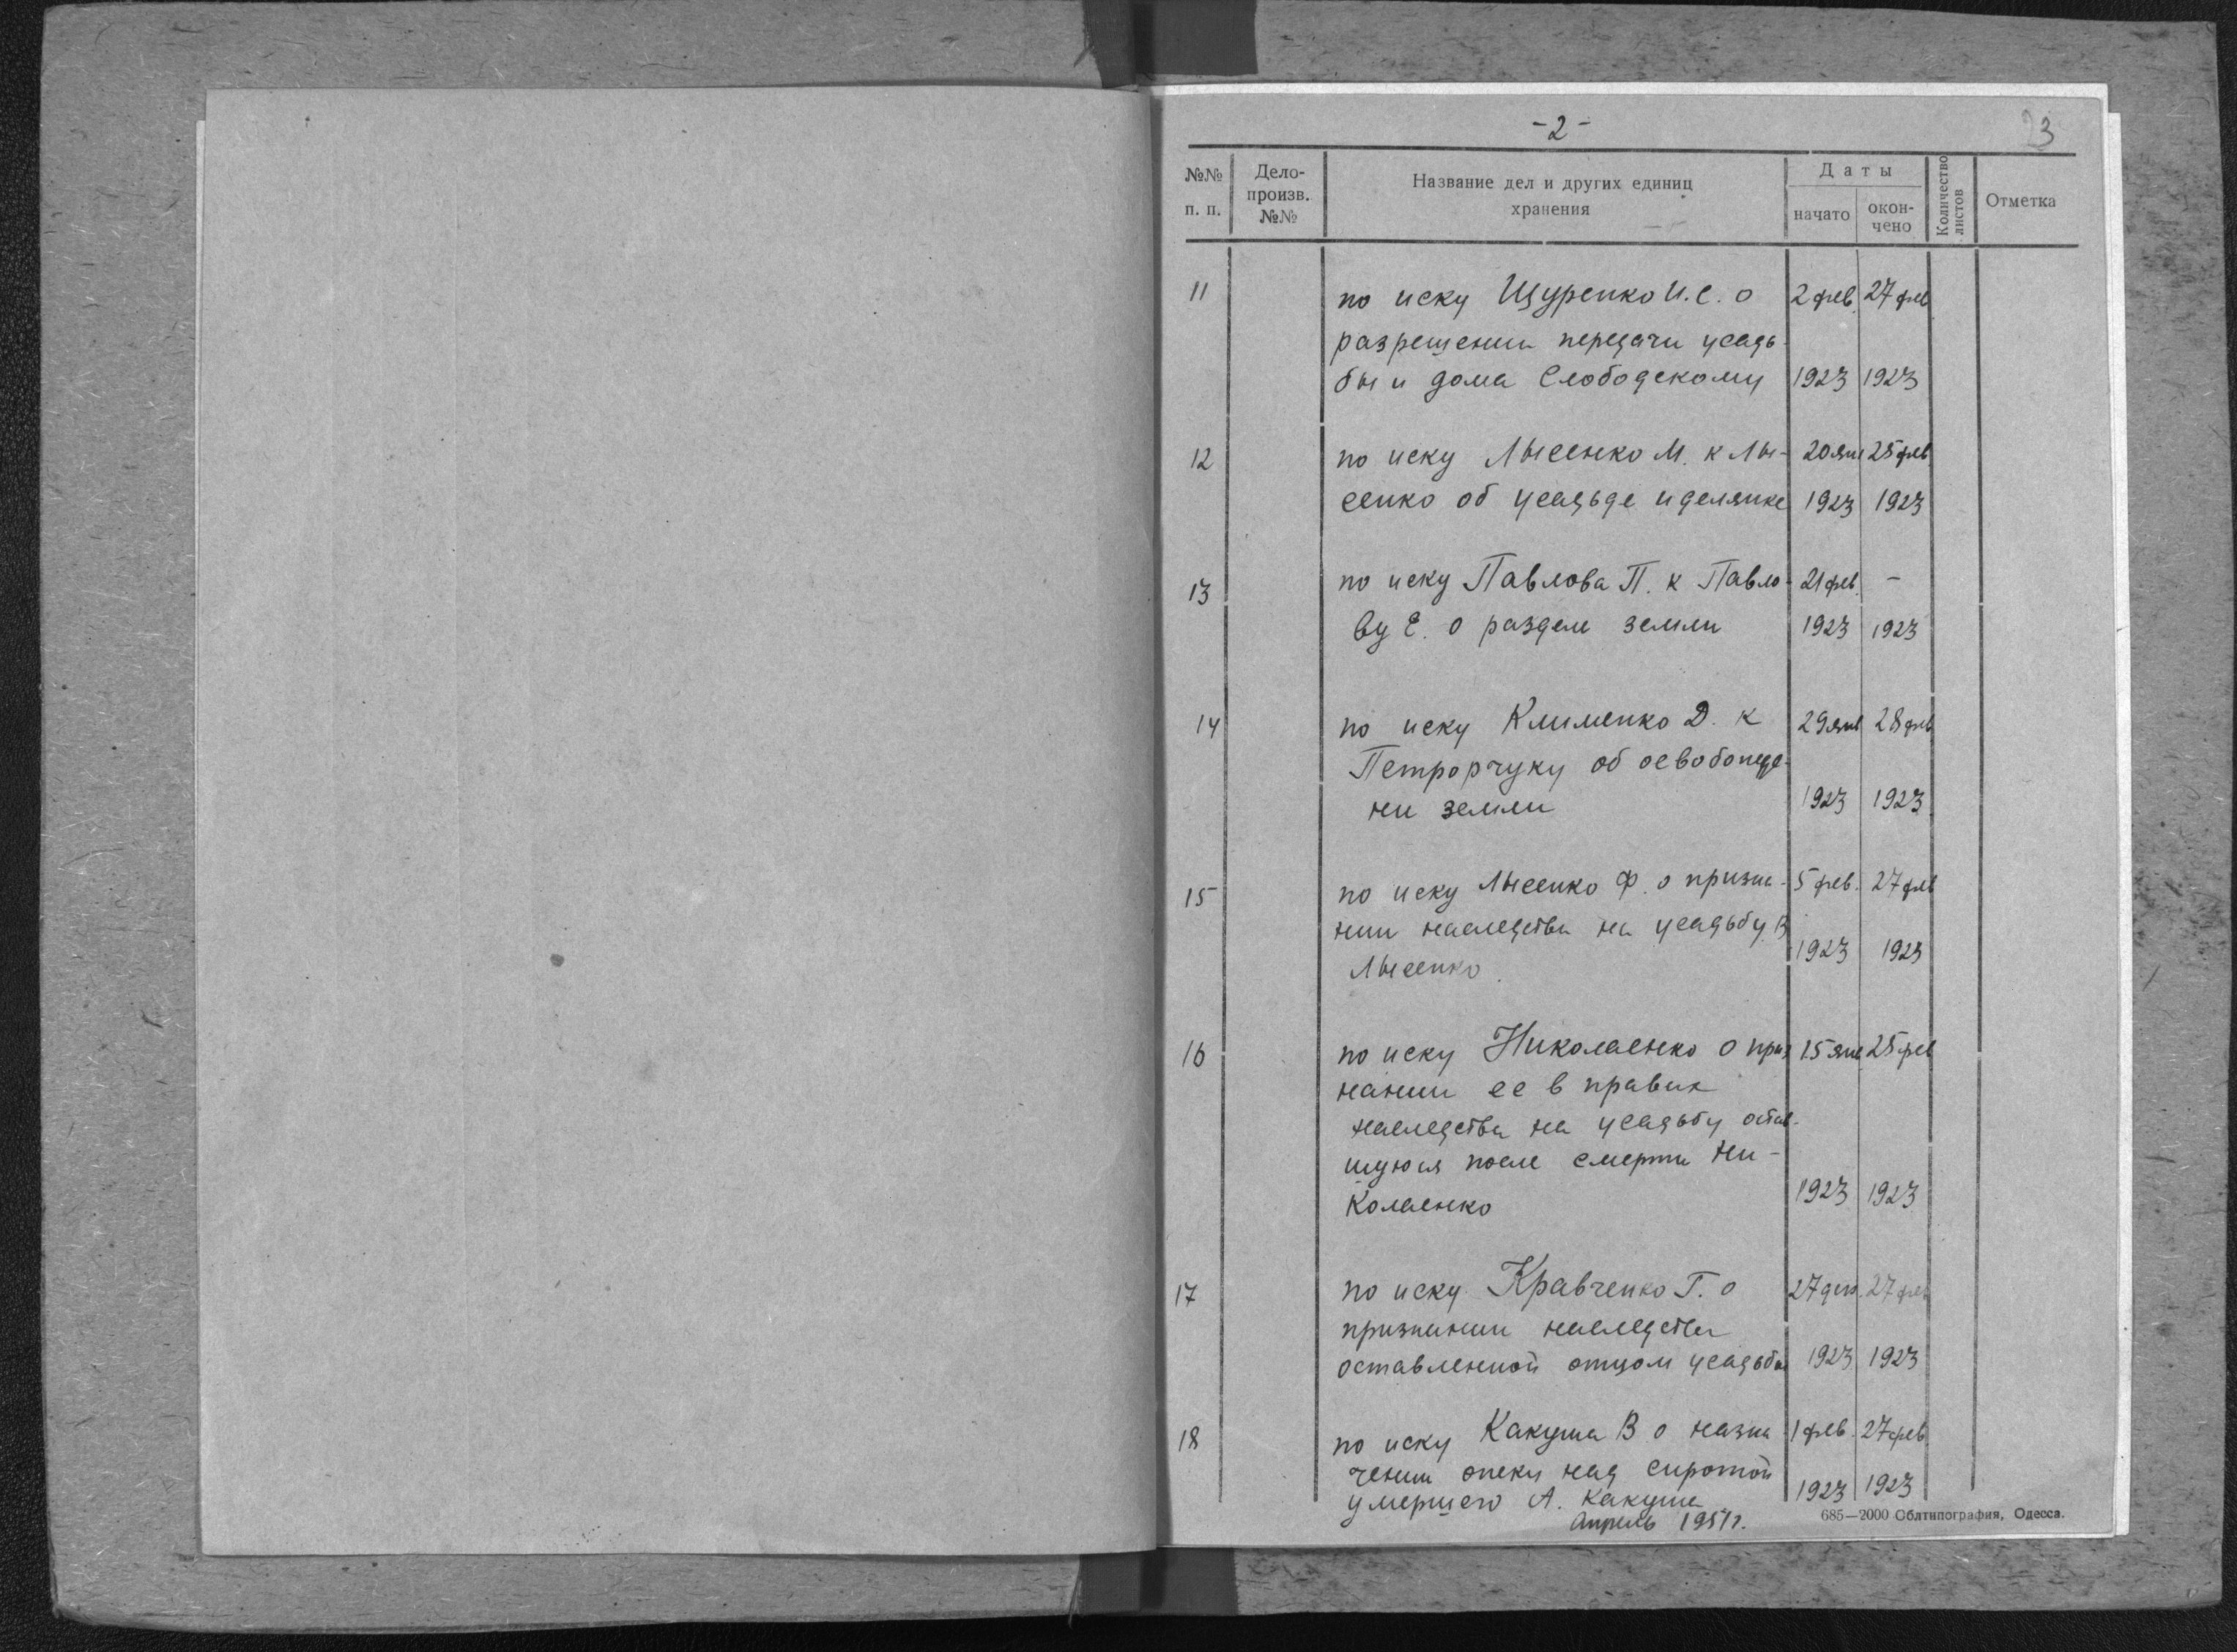 -2-
23
№№ п. п. Дело-произв. №№ Название дел и других единиц хранения Даты начато окон-чено Количество листов Отметка
11 по иску Щуренко И.С. о 2 фев. 27 фев
разрешении передачи усадь-
бы и дома Слободскому 1923 1923
12 по иску Лысенко М. к Лы- 20 янв 25 фев
сенко об усадьде и делянке 1923 1923
13 по иску Павлова П. к Павло- 21 фев. -
ву Е. о разделе земли 1923 1923
14 по иску Клименко Д. к 29 янв 28 фев
Петрорчуку об освобожде-
ни земли 1923 1923
15 по иску Лысенко Ф. о призна- 5 фев. 27 фев
нии наследства на усадьбу В
Лысенко. 1923 1923
16 по иску Николаенко о приз 15 янв 25 фев
нании ее в правах
наследства на усадьбу остав-
шуюся после смерти Ни-
колаенко 1923 1923
17 по иску Кравченко Г. о 27 дек. 27 фев
признании наследства
оставленной отцом усадьбы 1923 1923
18 по иску Какуша В о назна 1 фев. 27 фев
чении опеки над сиротой
умершего А. Какуша 1923 1923
Апрель 1951 г.
685—2000 Облтипография, Одесса.